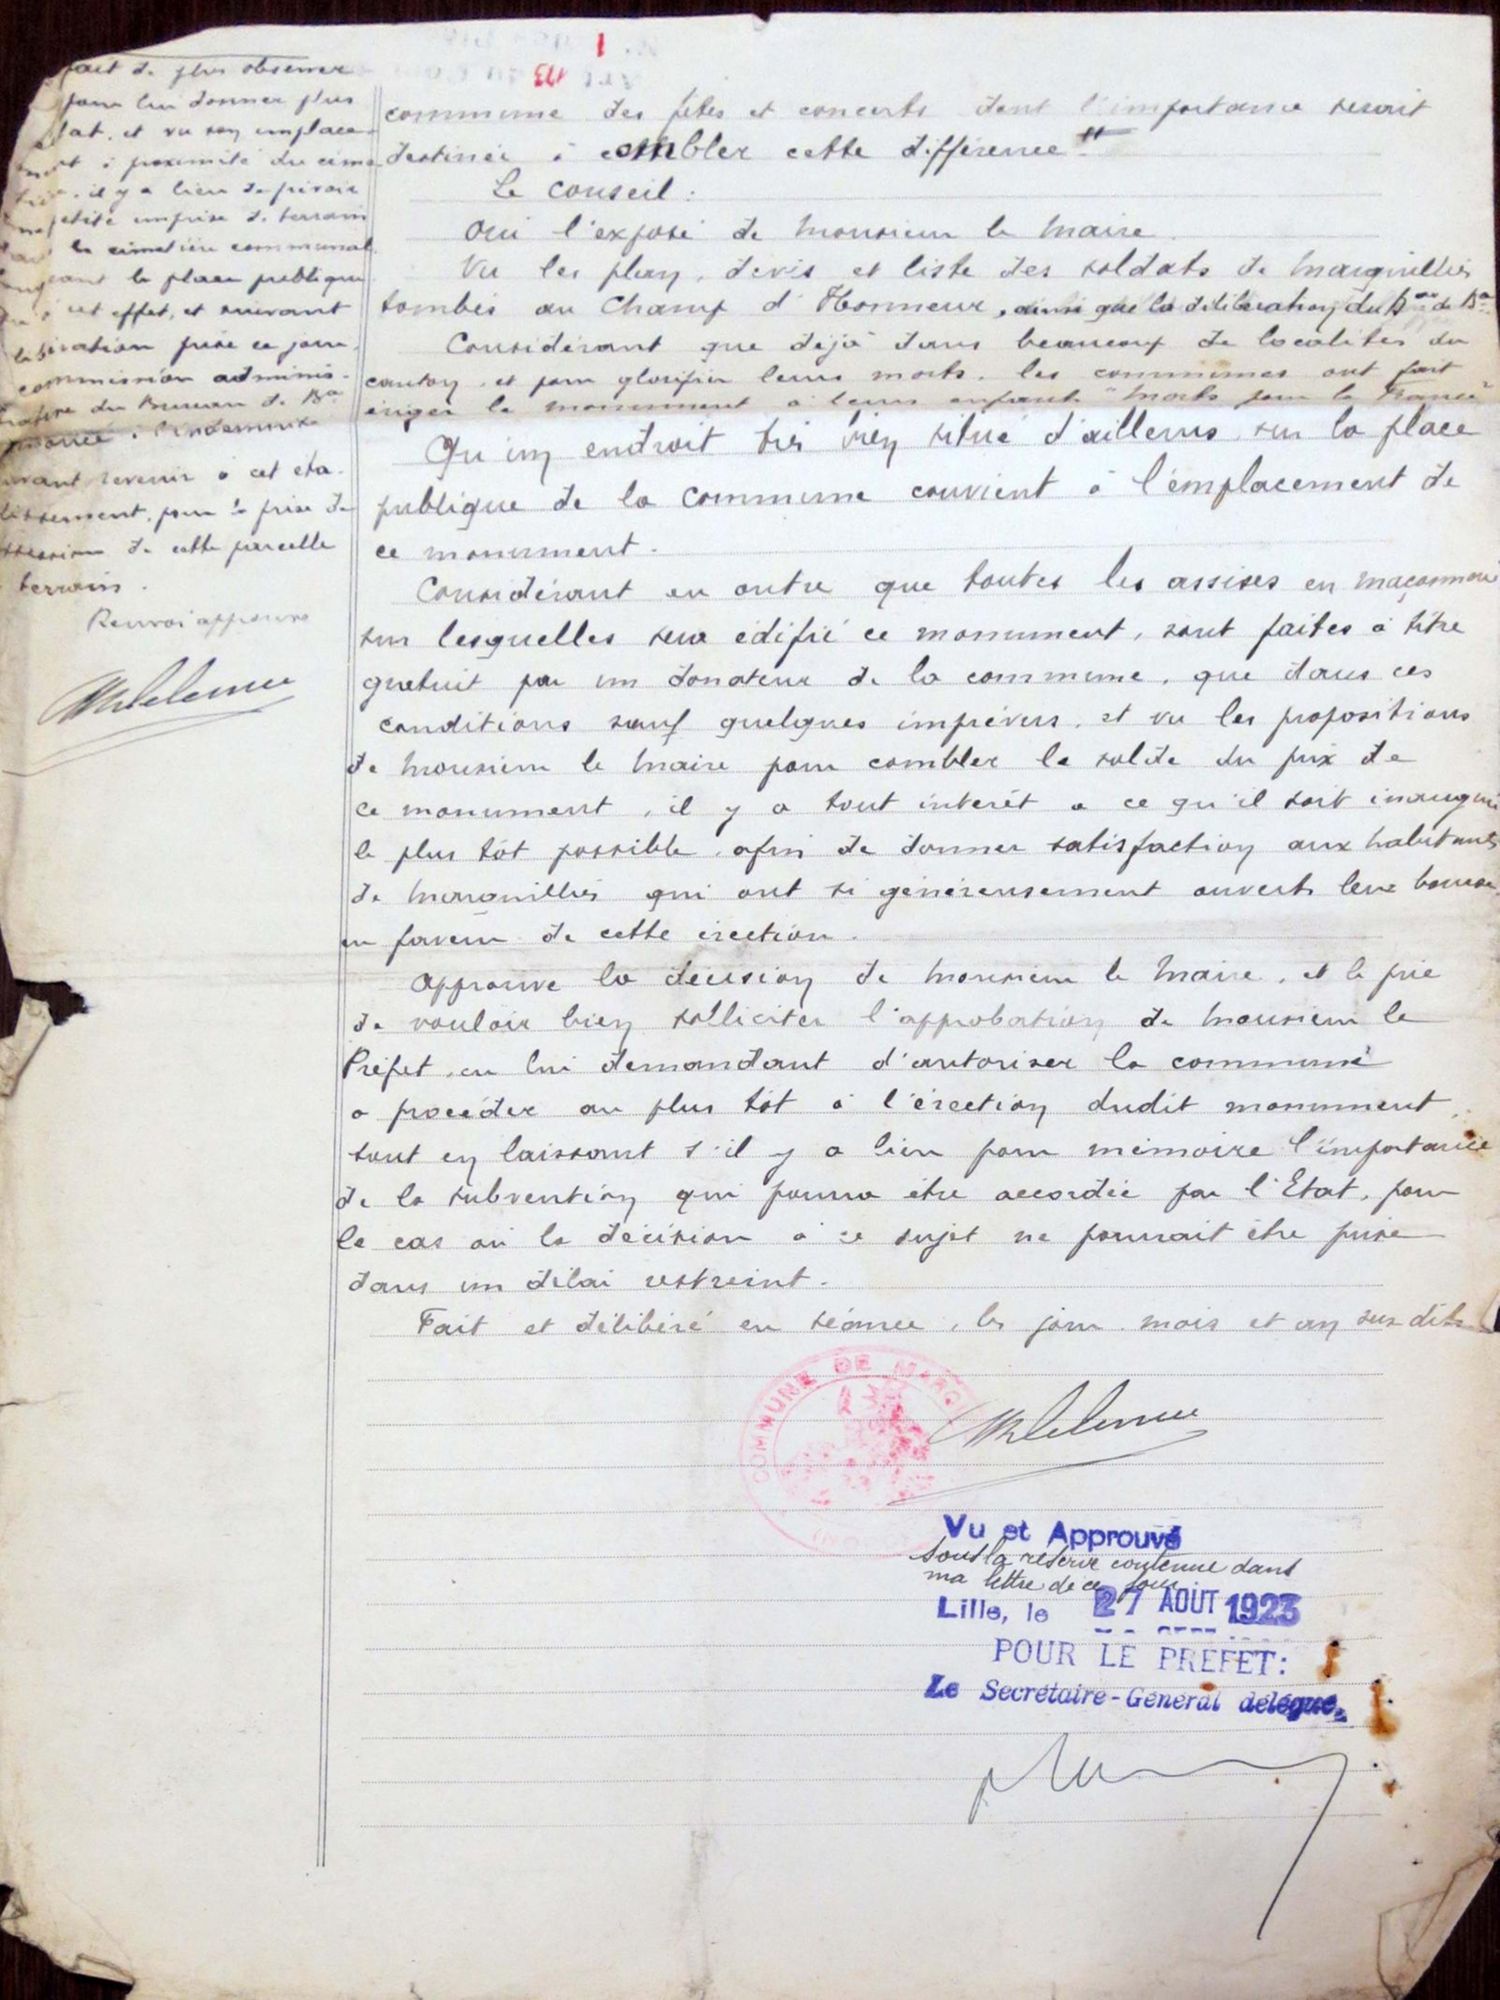 fait de plus observer
pour lui donner plus
et vu son emplace-
à proximité du cime
il y a lieu de prévoir
petite emprise de terrain
le cimetière communal
la place publique
cet effet, et suivant
prise ce jour,
commission adminis-
du Bureau de Bce
à l'indemnité
revenir à cet éta-
pour la prise de
de cette parcelle
terrain.
Renvoi approuvé
commune des fêtes et concerts dont l'importance serait
destinée à combler cette différence"
Le Conseil:
Oui l'exposé de Monsieur le Maire
Vu les plan, devis et liste des soldats de Marquillies
tombés au Champ d'Honneur, ainsi que la délibération du Bau de Bce
Considérant que déjà dans beaucoup de localités du
canton, et pour glorifier leurs morts, les communes ont fait
ériger le monument à leurs enfants "Morts pour la France"
Qu'un endroit très bien situé d'ailleurs sur la place
publique de la Commune convient à l'emplacement de
ce monument.
Considérant en outre que toutes les assises en maçonnerie
sur lesquelles sera édifié ce monument, sont faites à titre
gratuit par un donateur de la commune, que dans ces
conditions sauf quelques imprévus, et vu les propositions
de Monsieur le Maire pour combler le solde du prix de
ce monument, il y a tout intérêt a ce qu'il soit inauguré
le plus tôt possible, afin de donner satisfaction aux habitants
de Marquillies qui ont si généreusement ouvert leur bourse
en faveur de cette érection.
Approuve la décision de Monsieur le Maire, et le prie
de vouloir bien solliciter l'approbation de Monsieur le
Préfet, en lui demandant d'autoriser la commune
a procéder au plus tôt à l'érection dudit monument,
tout en laissant s'il y a lieu pour mémoire l'importance
de la subvention qui pourra être accordée par l'Etat, pour
le cas où la décision à ce sujet ne pourrait être prise
dans un délai restreint.
Fait et délibéré en séance, les jour, mois et an sus-dits
COMMUNE DE MARQ
Vu et Approuvé
sous la réserve contenue dans
ma lettre de ce jour
Lille, le 27 AOUT 1923
POUR LE PREFET:
Le Secrétaire-Général délégué,